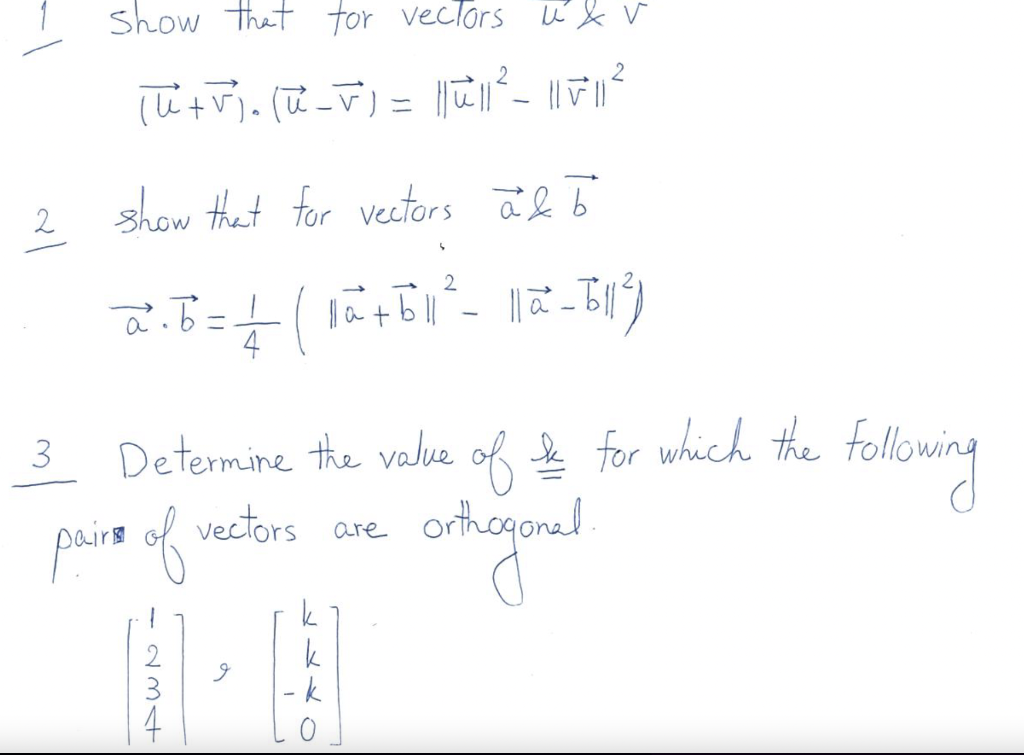 1 show that for vectors u⃗ & v
(u⃗ + v⃗) . (u⃗ - v⃗) = ||u⃗||² - ||v⃗||²
2 show that for vectors a⃗ & b⃗
a⃗ . b⃗ = 1/4 ( ||a⃗ + b⃗||² - ||a⃗ - b⃗||²)
3 Determine the value of k for which the following
pair of vectors are orthogonal.
[1 2 3 4] , [k k -k 0]